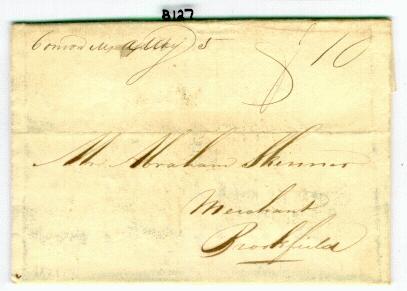 B127
May 5
10
Mr. Abraham Skinner
Merchant
Brookfield